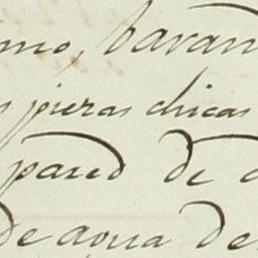 mo, baran
pieras chicas
pared de
de agua de